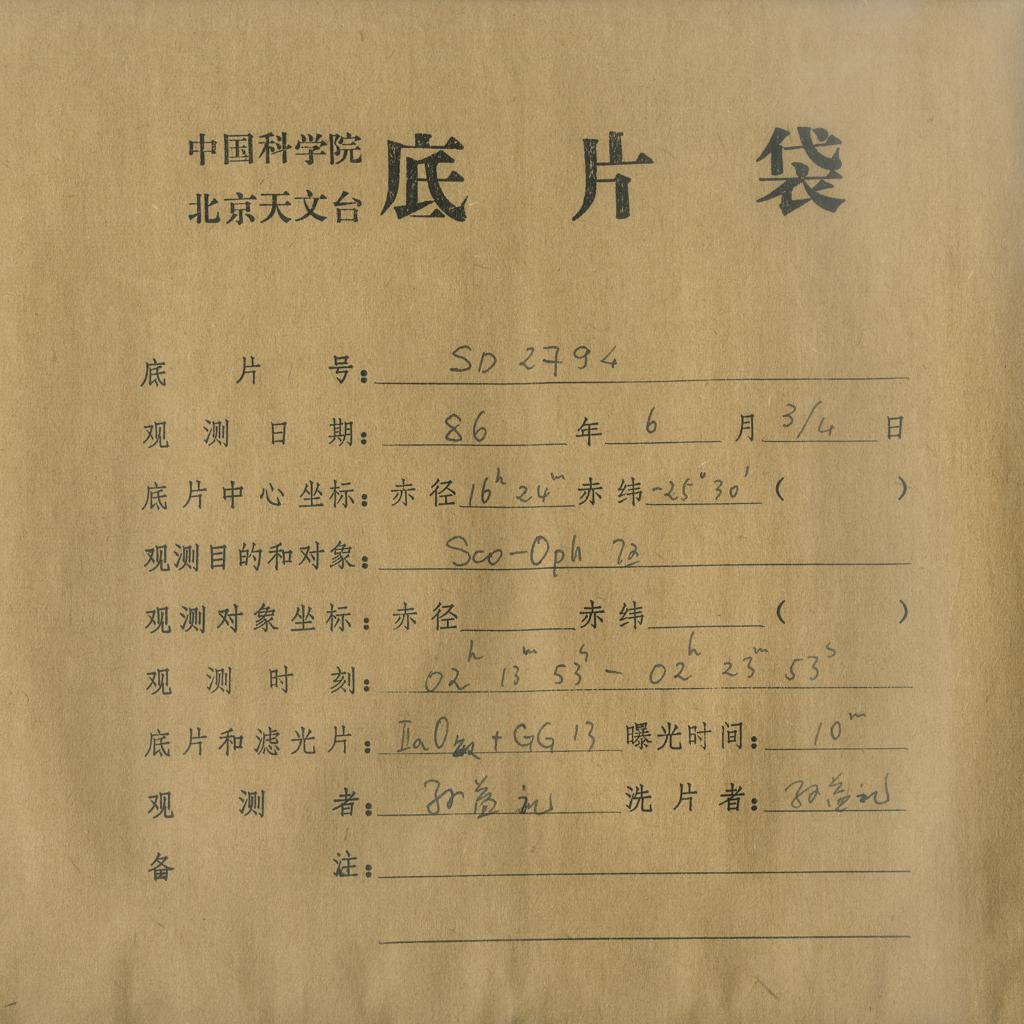 中国科学院
北京天文台 底片袋
底片号: SD 2794
观测日期: 86 年 6 月 3/4 日
底片中心坐标: 赤径 16ʰ 24ᵐ 赤纬 -25° 30′ ( )
观测目的和对象: Sco-Oph
观测对象坐标: 赤径 赤纬 ( )
观测时刻: 02ʰ 13ᵐ 53ˢ - 02ʰ 23ᵐ 53ˢ
底片和滤光片: IIaO敏 + GG 13 曝光时间: 10ᵐ
观测者: 孙益礼 洗片者: 孙益礼
备注: